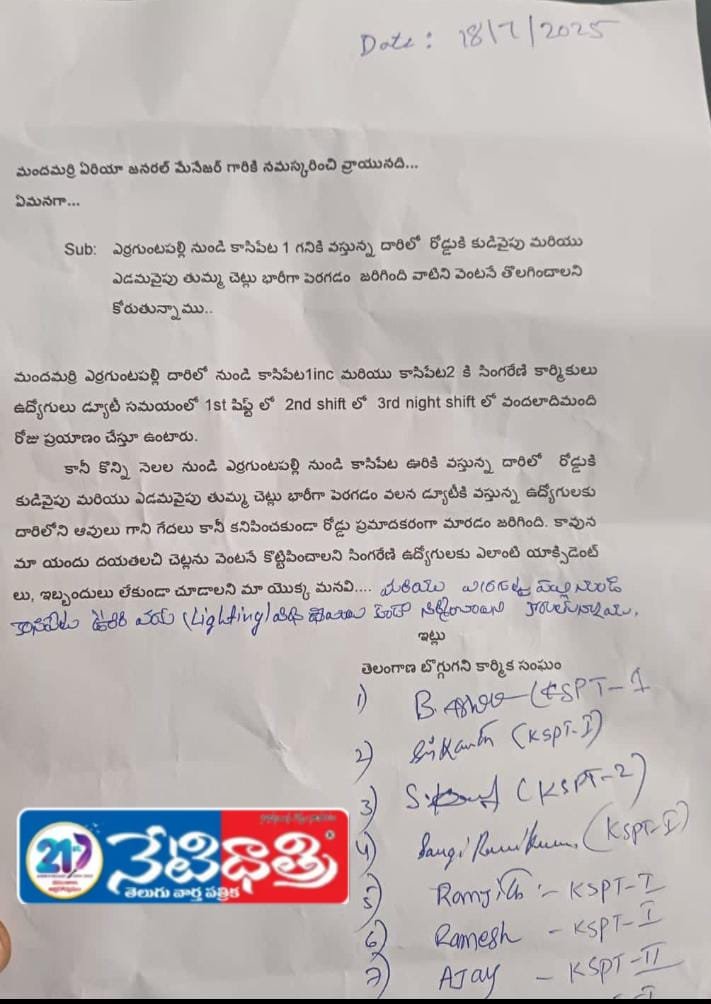 Date: 18/7/2025
మందమర్రి ఏరియా జనరల్ మేనేజర్ గారికి నమస్కరించి వ్రాయునది...
ఏమనగా...
Sub: ఎర్రగుంటపల్లి నుండి కాసిపేట 1 గనికి వస్తున్న దారిలో రోడ్డుకి కుడివైపు మరియు
ఎడమవైపు తుమ్మ చెట్లు భారీగా పెరగడం జరిగింది వాటిని వెంటనే తొలగించాలని
కోరుతున్నాము..
మందమర్రి ఎర్రగుంటపల్లి దారిలో నుండి కాసిపేట1inc మరియు కాసిపేట2 కి సింగరేణి కార్మికులు
ఉద్యోగులు డ్యూటీ సమయంలో 1st షిఫ్ట్ లో 2nd shift లో 3rd night shift లో వందలాదిమంది
రోజు ప్రయాణం చేస్తూ ఉంటారు.
కానీ కొన్ని నెలల నుండి ఎర్రగుంటపల్లి నుండి కాసిపేట ఊరికి వస్తున్న దారిలో రోడ్డుకి
కుడివైపు మరియు ఎడమవైపు తుమ్మ చెట్లు భారీగా పెరగడం వలన డ్యూటీకి వస్తున్న ఉద్యోగులకు
దారిలోని ఆవులు గాని గేదలు కానీ కనిపించకుండా రోడ్డు ప్రమాదకరంగా మారడం జరిగింది. కావున
మా యందు దయతలచి చెట్లను వెంటనే కొట్టిపించాలని సింగరేణి ఉద్యోగులకు ఎలాంటి యాక్సిడెంట్
లు, ఇబ్బందులు లేకుండా చూడాలని మా యొక్క మనవి.... మరియు నుండి
(Lighting)
ఇట్లు
తెలంగాణ బొగ్గుగని కార్మిక సంఘం
1) B. (KSPT-1
2) శ్రీకాంత్ (KSPT-I)
3) (KSPT-2)
4) (KSPT-I)
5) :- KSPT-I
6) Ramesh - KSPT-I
7) AJAY - KSPT-II
21
నేటిధాత్రి
తెలుగు వార్త పత్రిక